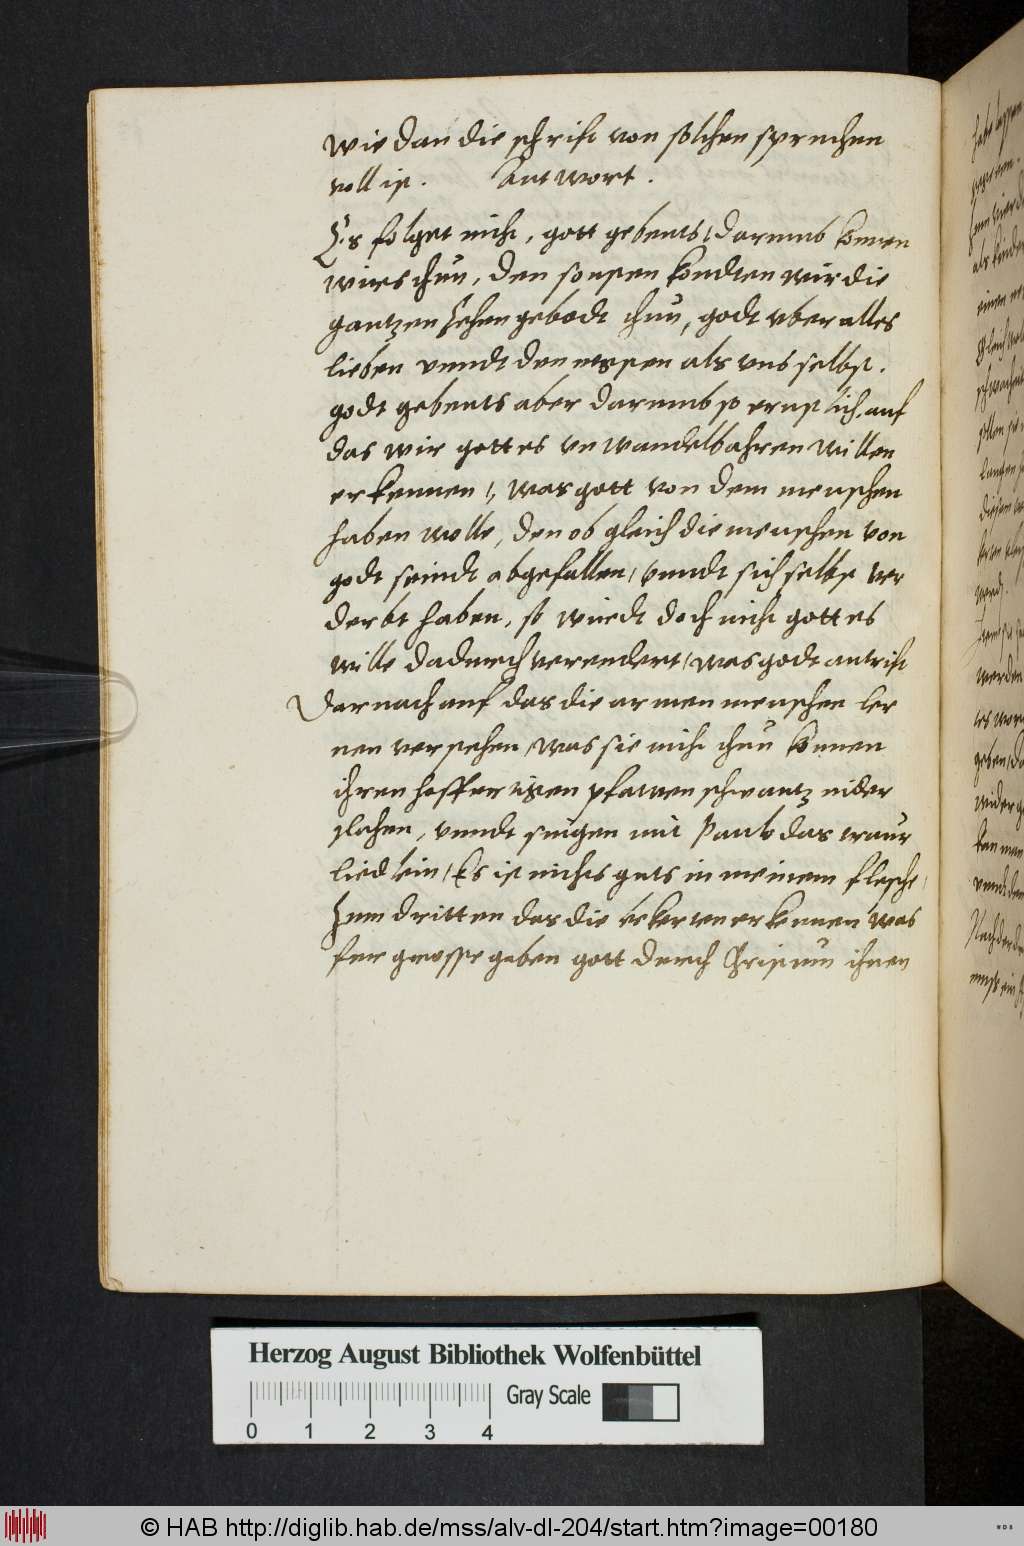 wie dan die schrift von solchen spruchen
voll ist. Antwort.
Es folget nicht, gott gebeuts / darumb konnen
wirs thun, den sonsten kondten wir die
gantzen zehen gebodt thun, godt vber alles
lieben vnndt den negsten als vns selbst.
godt gebeuts aber darumb so ernstlich, auf
das wir gottes vnwandelbahren willen
erkennen /, was gott von dem menschen
haben wolle, den ob gleich die menschen von
godt seindt abgefallen / vnndt sich selbst ver
derbt haben, so wirdt doch nicht gottes
wille dadurch verendert / was godt antrift
Darnach auf das die armen menschen ler
nen verstehen / was sie nicht thun konnen
ihren hoffertigen pfawen schwantz nider
slahen, vnndt singen mit Paulo das traur
liedlein / Es ist nichts guts in meinem flesche /
Zum dritten das die bekerten erkennen was
fur grosse gaben gott durch Christum ihnen
Herzog August Bibliothek Wolfenbüttel
Gray Scale
0 1 2 3 4
© HAB http://diglib.hab.de/mss/alv-dl-204/start.htm?image=00180